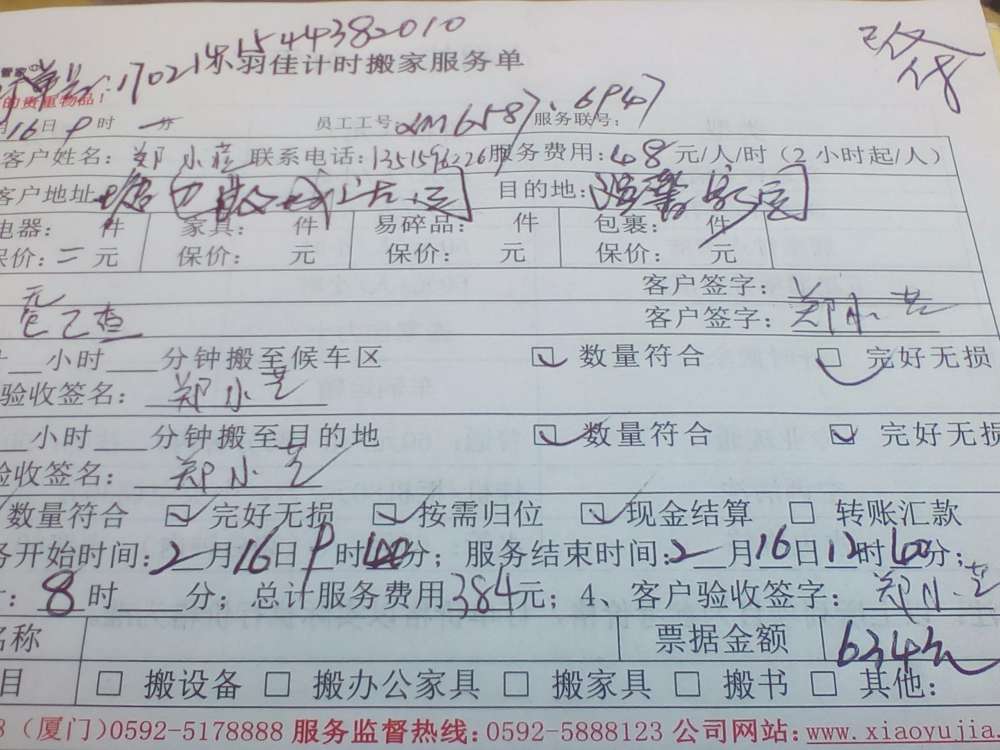 15544382010
管家
单号:17021
羽佳计时搬家服务单
的贵重物品!
月16日9时 分 员工工号: XM6587、6947 服务联号:
客户姓名: 郑小 联系电话: 服务费用:48元/人/时(2小时起/人)
客户地址: 目的地:
电器: 件 家具: 件 易碎品: 件 包裹: 件
保价: 元 保价: 元 保价: 元 保价: 元
客户签字:
客户签字: 郑小芝
小时 分钟搬至候车区 ☑ 数量符合 ☑ 完好无损
验收签名: 郑小芝
小时 分钟搬至目的地 ☑ 数量符合 ☑ 完好无损
验收签名: 郑小芝
数量符合 ☑ 完好无损 ☑ 按需归位 ☑ 现金结算 □ 转账汇款
务开始时间:2月16日9时00分;服务结束时间:2月16日12时00分;
8时 分;总计服务费用384元;4、客户验收签字:郑小芝
名称 票据金额 634元
目 □ 搬设备 □ 搬办公家具 □ 搬家具 □ 搬书 □ 其他:
8(厦门)0592-5178888 服务监督热线:0592-5888123 公司网站:www.xiaoyujia.